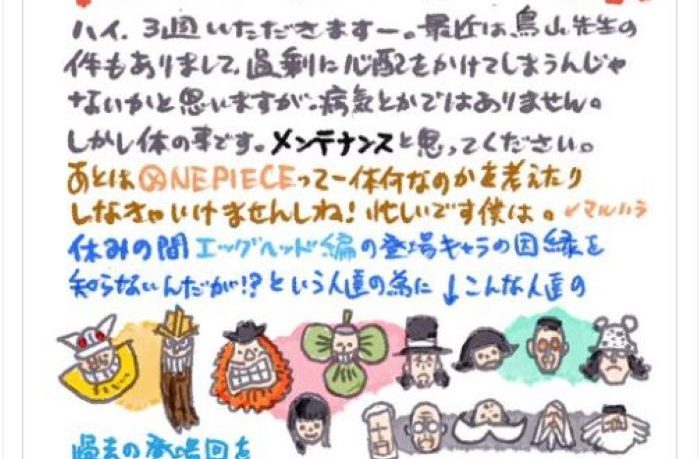 ハイ、3週いただきますー。最近は、鳥山先生の
件もありまして、過剰に心配をかけてしまうんじゃ
ないかと思いますが、病気とかではありません。
しかし体の事です。メンテナンスと思ってください。
あとはONEPIECEって一体何なのかを考えたり
しなきゃいけませんしね!忙しいです僕は。
休みの間エッグヘッド編の登場キャラの因縁を
知らないんだが!?という人達の為に↓こんな人達の
過去の登場回を